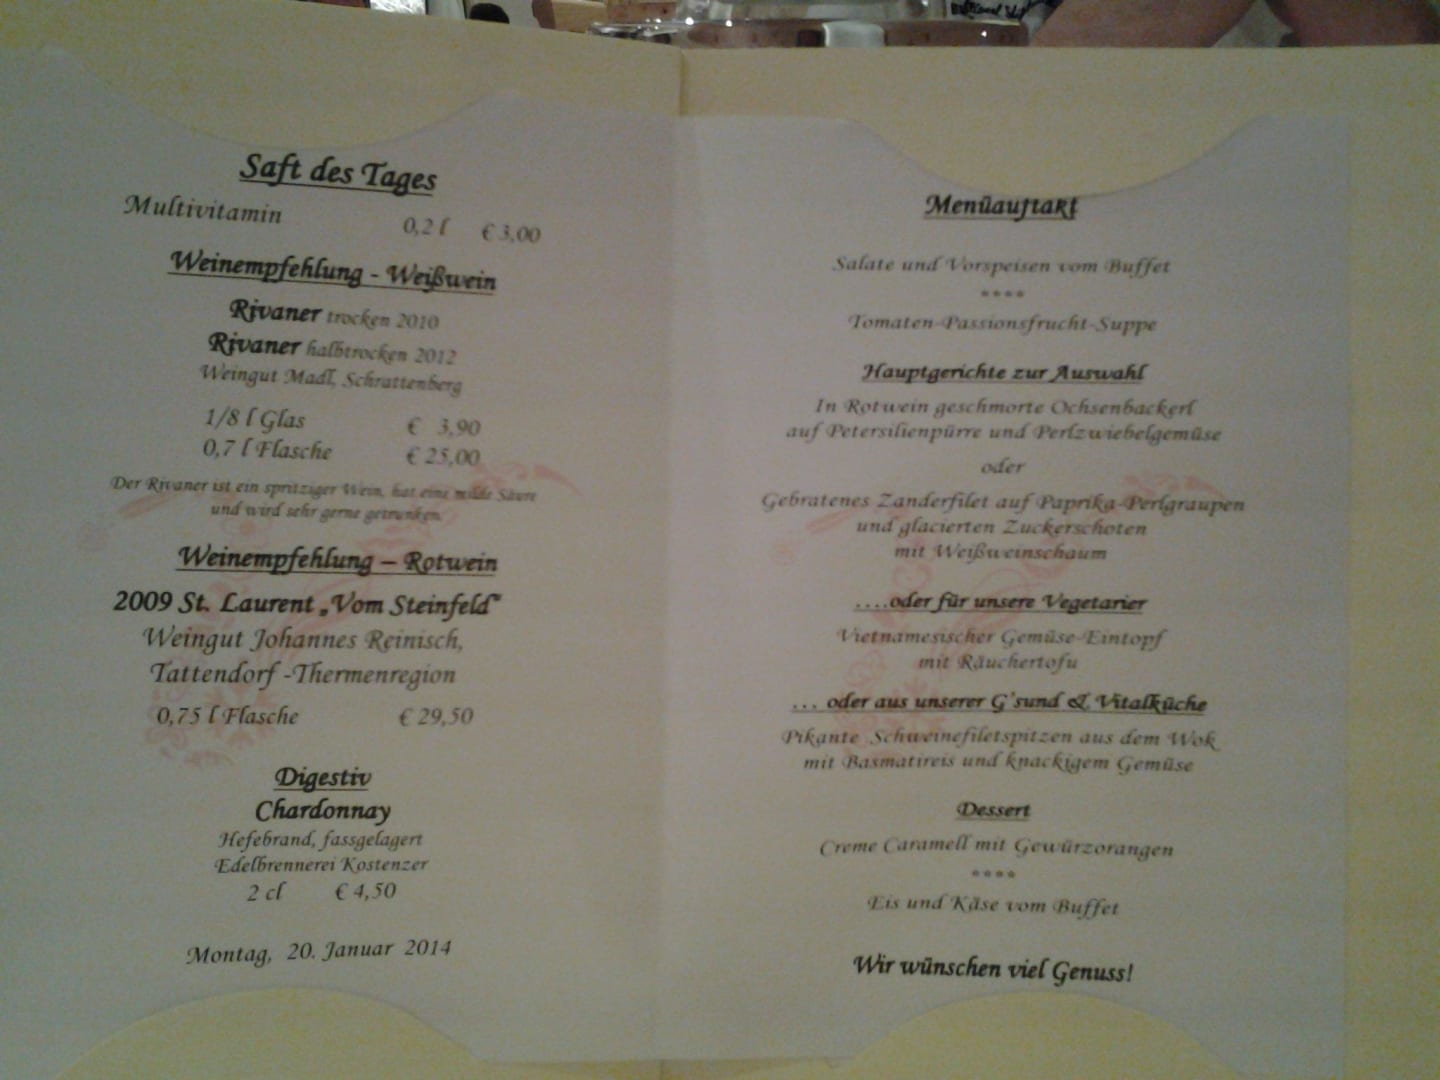 Saft des Tages
Multivitamin 0,2 l € 3,00
Weinempfehlung - Weißwein
Rivaner trocken 2010
Rivaner halbtrocken 2012
Weingut Madl, Schrattenberg
1/8 l Glas € 3,90
0,7 l Flasche € 25,00
Der Rivaner ist ein spritziger Wein, hat eine milde Säure
und wird sehr gerne getrunken.
Weinempfehlung – Rotwein
2009 St. Laurent „Vom Steinfeld"
Weingut Johannes Reinisch,
Tattendorf -Thermenregion
0,75 l Flasche € 29,50
Digestiv
Chardonnay
Hefebrand, fassgelagert
Edelbrennerei Kostenzer
2 cl € 4,50
Montag, 20. Januar 2014
Menüauftakt
Salate und Vorspeisen vom Buffet
****
Tomaten-Passionsfrucht-Suppe
Hauptgerichte zur Auswahl
In Rotwein geschmorte Ochsenbackerl
auf Petersilienpürre und Perlzwiebelgemüse
oder
Gebratenes Zanderfilet auf Paprika-Perlgraupen
und glacierten Zuckerschoten
mit Weißweinschaum
....oder für unsere Vegetarier
Vietnamesischer Gemüse-Eintopf
mit Räuchertofu
... oder aus unserer G'sund & Vitalküche
Pikante Schweinefiletspitzen aus dem Wok
mit Basmatireis und knackigem Gemüse
Dessert
Creme Caramell mit Gewürzorangen
****
Eis und Käse vom Buffet
Wir wünschen viel Genuss!